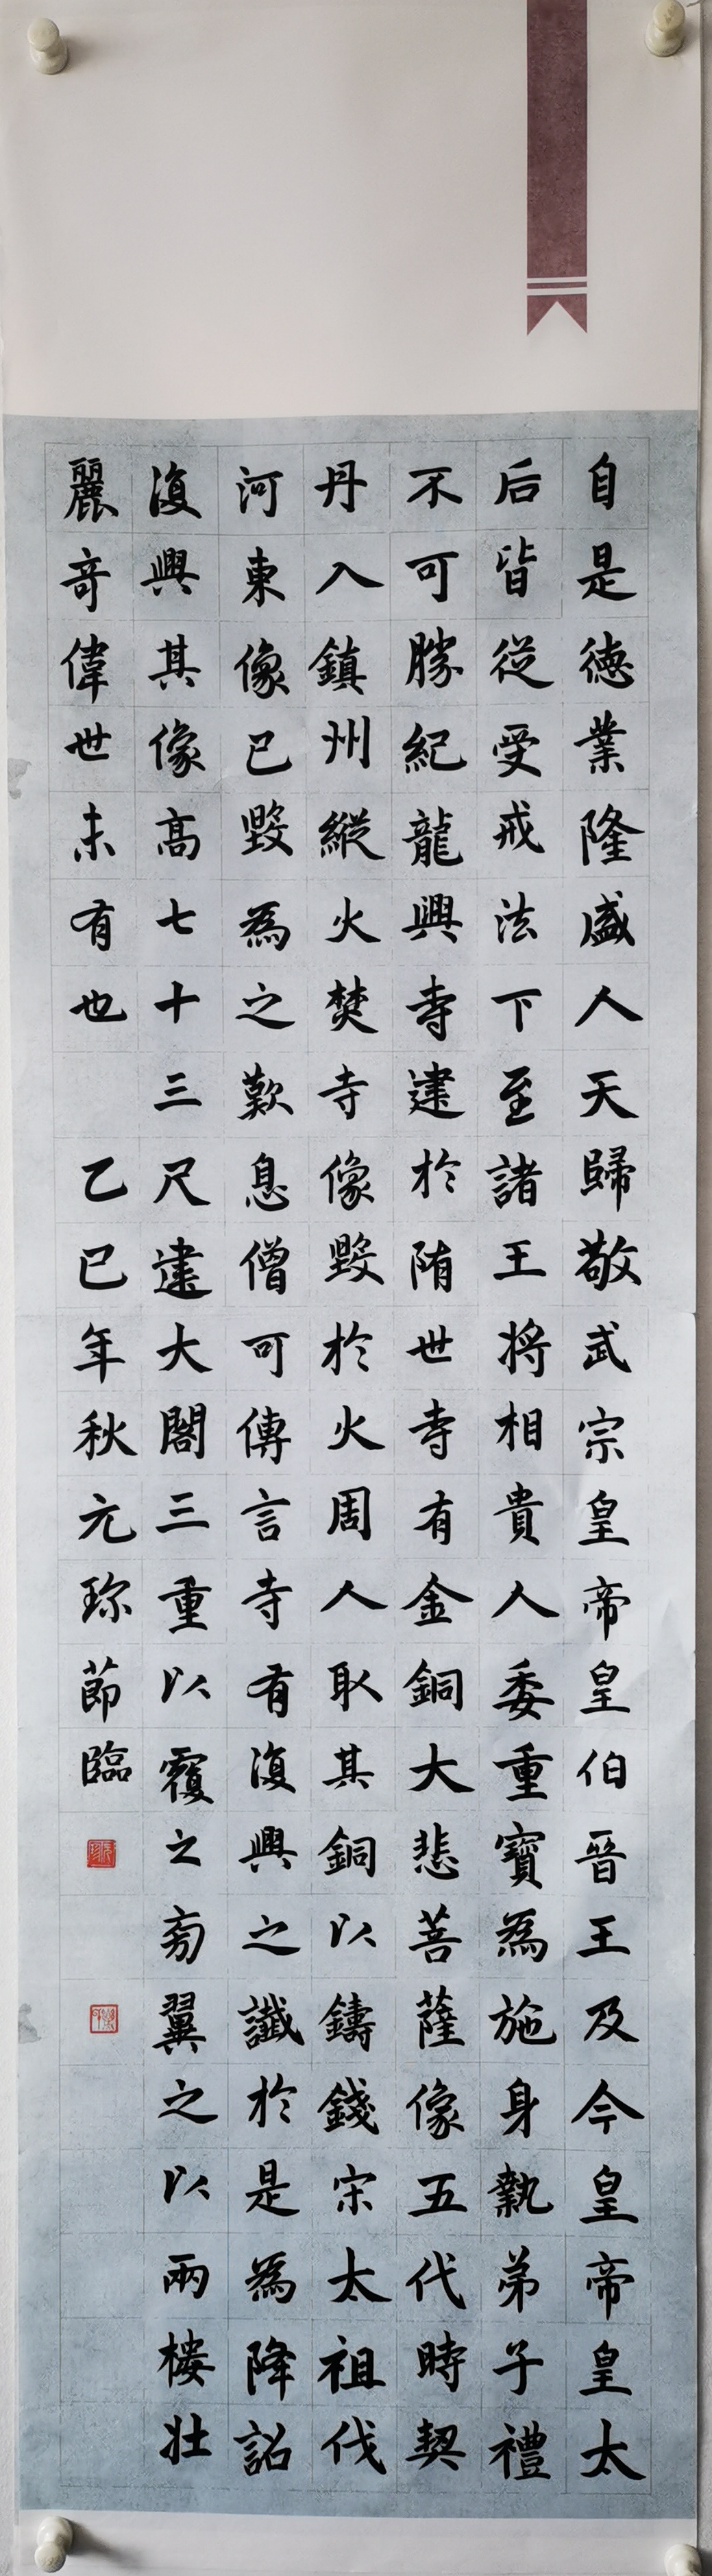 自是德業隆盛人天歸敬武宗皇帝皇伯晉王及今皇帝皇太
后皆從受戒法下至諸王将相貴人委重寶為施身執弟子禮
不可勝紀龍興寺建於隋世寺有金銅大悲菩薩像五代時契
丹入鎮州縱火焚寺像毀於火周人取其銅以鑄錢宋太祖伐
河東像已毀為之歎息僧可傳言寺有復興之讖於是為降詔
復興其像高七十三尺建大閣三重以覆之旁翼之以兩樓壮
麗奇偉世未有也 乙巳年秋元珍節臨